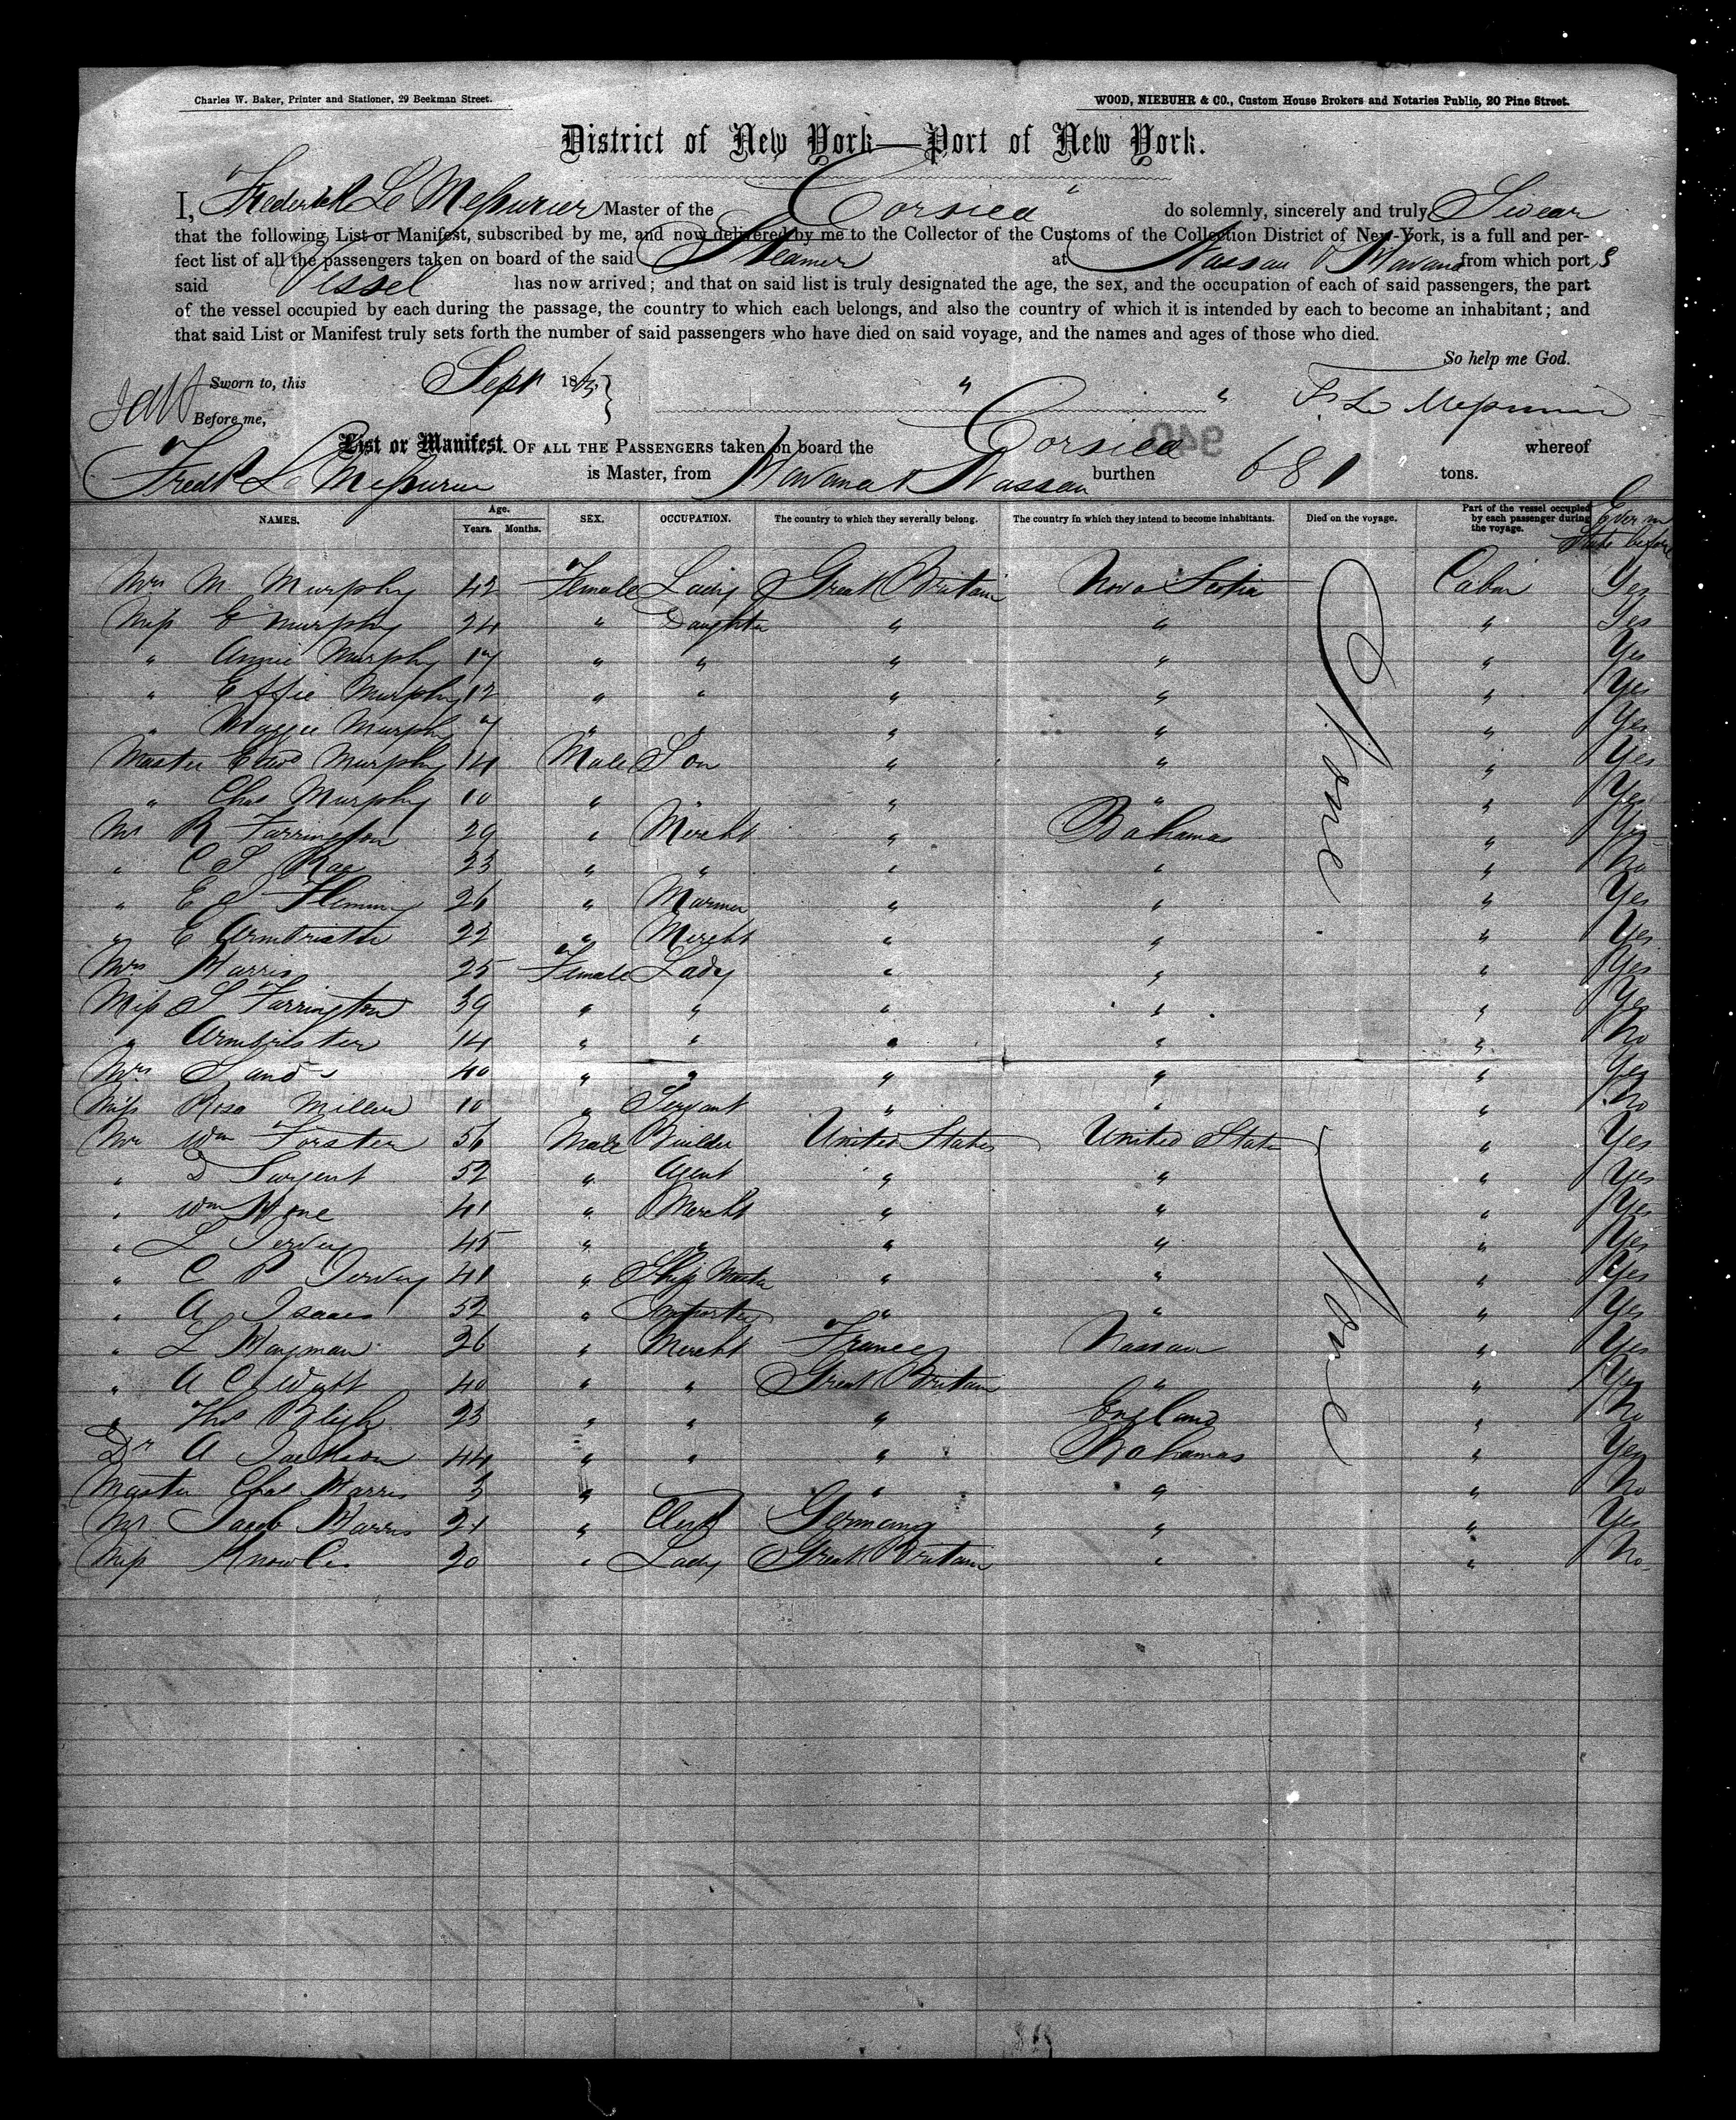 Charles W. Baker, Printer and Stationer, 29 Beekman Street. WOOD, NIEBUHR & CO., Custom House Brokers and Notaries Public, 20 Pine Street.
District of New York—Port of New York.
I, Frederick Le Messurier Master of the Corsica do solemnly, sincerely and truly Swear
that the following List or Manifest, subscribed by me, and now delivered by me to the Collector of the Customs of the Collection District of New-York, is a full and per-
fect list of all the passengers taken on board of the said Steamer at Nassau & Havana from which port s
said Vessel has now arrived; and that on said list is truly designated the age, the sex, and the occupation of each of said passengers, the part
of the vessel occupied by each during the passage, the country to which each belongs, and also the country of which it is intended by each to become an inhabitant; and
that said List or Manifest truly sets forth the number of said passengers who have died on said voyage, and the names and ages of those who died.
So help me God.
Sworn to, this Sept 186
Before me, F Le Messurier
List or Manifest OF ALL THE PASSENGERS taken on board the Corsica whereof
Fredk Le Messurier is Master, from Havana & Nassau burthen 681 tons.
NAMES. Age. Years. Months. SEX. OCCUPATION. The country to which they severally belong. The country in which they intend to become inhabitants. Died on the voyage. Part of the vessel occupied by each passenger during the voyage. Ever in State before
Mrs M. Murphy 42 Female Lady Great Britain Nova Scotia None Cabin Yes
Miss E Murphy 24 " Daughter " " " Yes
" Annie Murphy 17 " " " " " Yes
" Effie Murphy 12 " " " " " Yes
" Maggie Murphy 7 " " " " " Yes
Master Edwd Murphy 14 Male Son " " " Yes
" Chas Murphy 10 " " " " " Yes
Mr R Farrington 29 " Mercht " Bahamas " Yes
" C S Rae 23 " " " " " No
" E J Fleming 26 " Mariner " " " Yes
" E Armbrister 22 " Mercht " " " Yes
Mrs Harris 25 Female Lady " " " Yes
Miss S Farrington 39 " " " " " Yes
" Armbrister 14 " " " " " No
Mrs Sands 40 " " " " " Yes
Miss Rosa Miller 10 " Servant " " " No
Mr Wm Forster 56 Male Builder United States United State None " Yes
" D Sargent 52 " Agent " " " Yes
" Wm Hone 41 " Mercht " " " Yes
" L 45 " " " " " Yes
" C P 41 " Ship Master " " " Yes
" A Isaacs 52 " Importer " " " Yes
" L Hayman 26 " Mercht France Nassau " Yes
" A C Wyatt 40 " " Great Britain " " Yes
" Thos Bligh 23 " " " England " No
Dr A Jackson 44 " " " Bahamas " Yes
Master Chas Harris 3 " " " " No
Mr Jacob Harris 21 " Clerk Germany " " Yes
Miss Knowles 20 " Lady Great Britain " " No